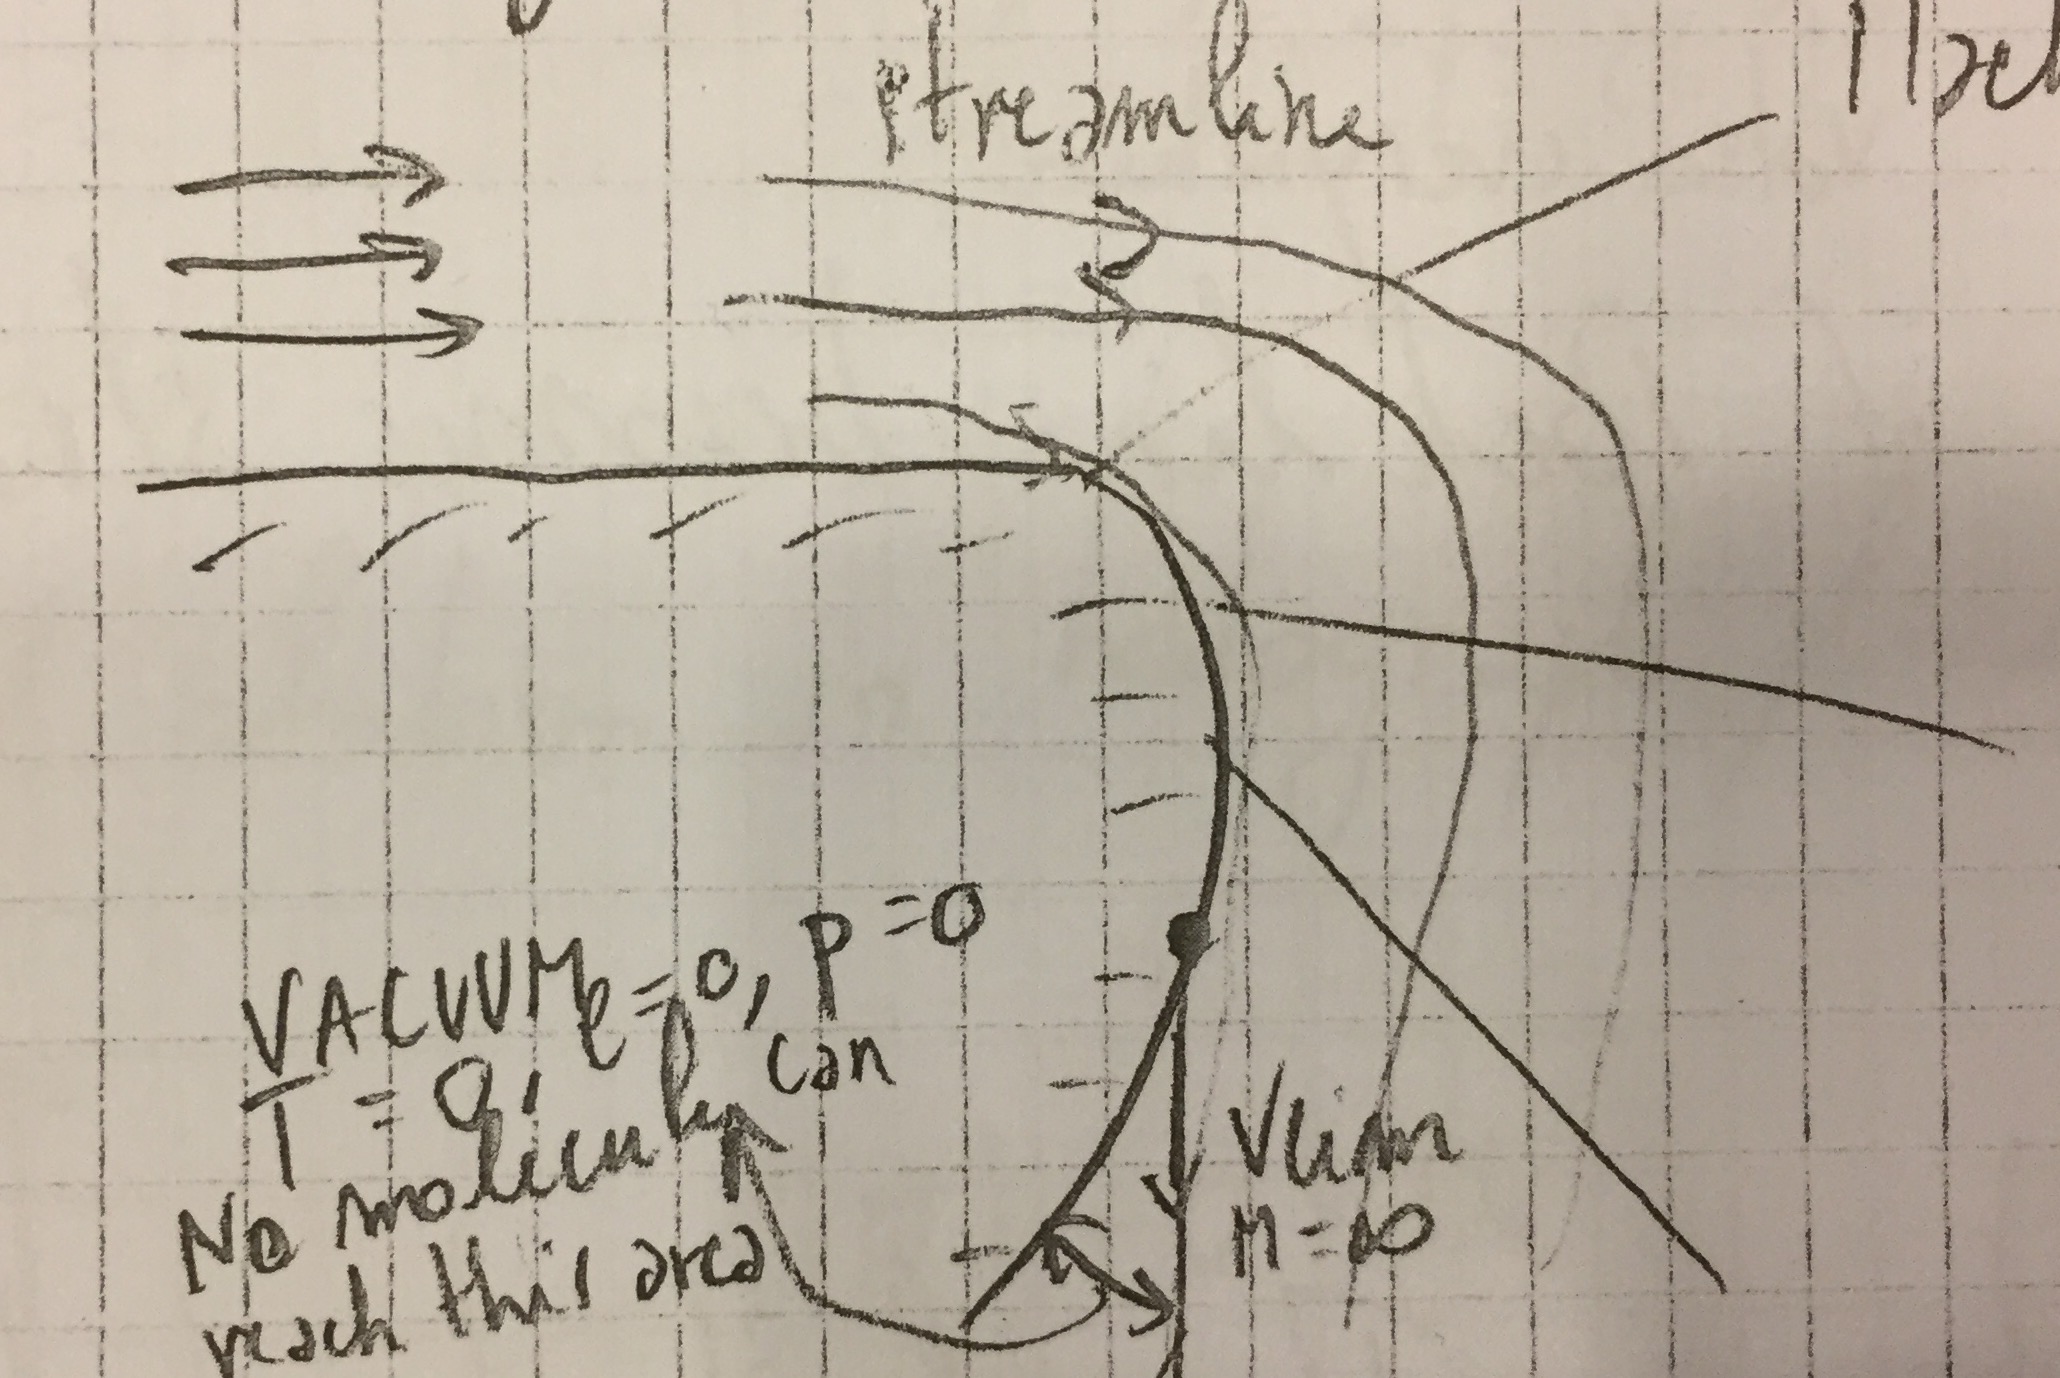 streamline
VACUUM ρ=0, p=0
T=0,
No molicules can
reach this area
Vlim
M=∞